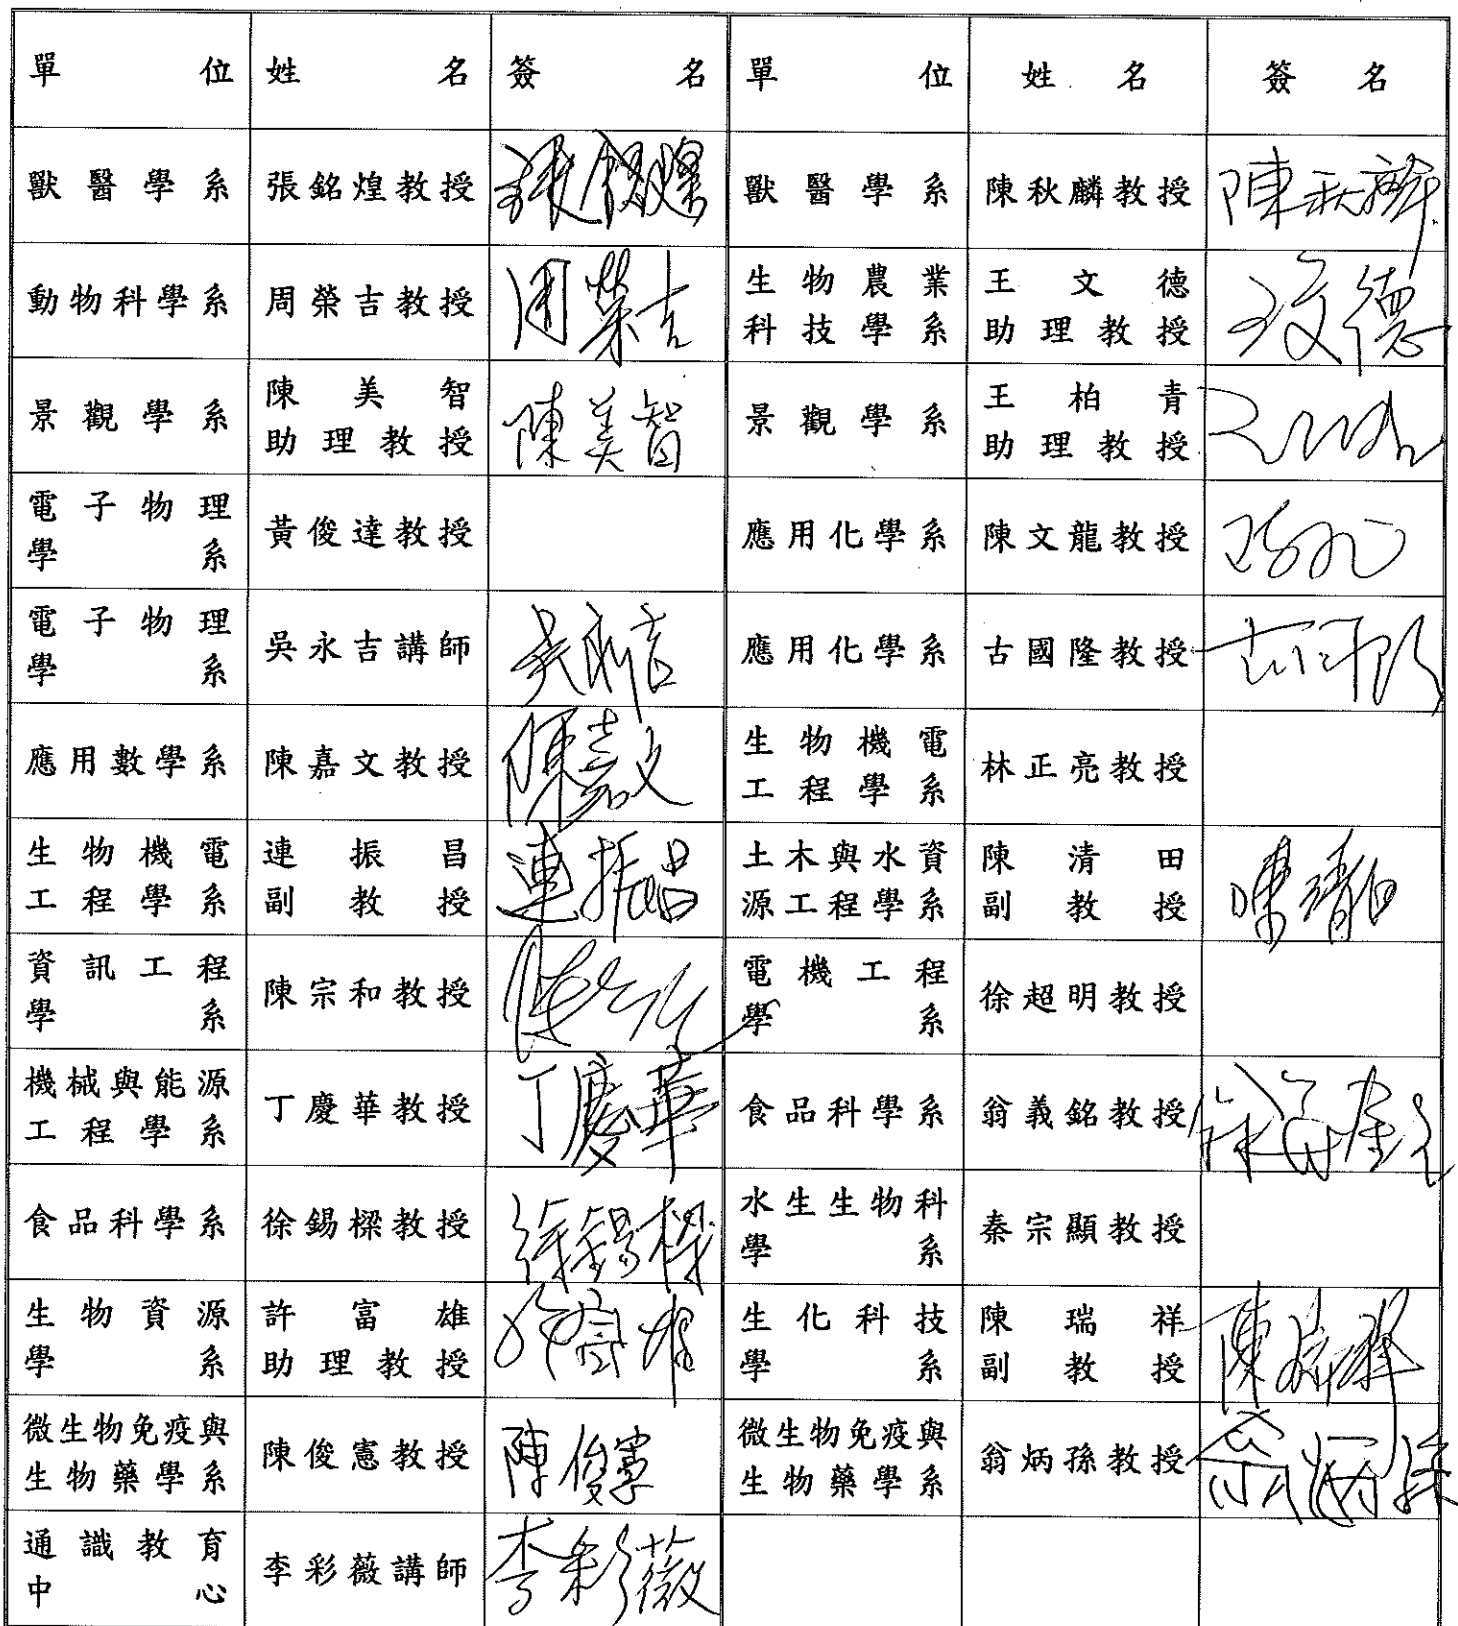 單位 姓名 簽名 單位 姓名 簽名
獸醫學系 張銘煌教授 獸醫學系 陳秋麟教授 陳秋麟
動物科學系 周榮吉教授 周榮吉 生物農業科技學系 王文德助理教授 王文德
景觀學系 陳美智助理教授 陳美智 景觀學系 王柏青助理教授
電子物理學系 黃俊達教授 應用化學系 陳文龍教授
電子物理學系 吳永吉講師 吳永吉 應用化學系 古國隆教授
應用數學系 陳嘉文教授 陳嘉文 生物機電工程學系 林正亮教授
生物機電工程學系 連振昌副教授 連振昌 土木與水資源工程學系 陳清田副教授 陳清田
資訊工程學系 陳宗和教授 電機工程學系 徐超明教授
機械與能源工程學系 丁慶華教授 丁慶華 食品科學系 翁義銘教授
食品科學系 徐錫樑教授 徐錫樑 水生生物科學系 秦宗顯教授
生物資源學系 許富雄助理教授 許富雄 生化科技學系 陳瑞祥副教授 陳瑞祥
微生物免疫與生物藥學系 陳俊憲教授 陳俊憲 微生物免疫與生物藥學系 翁炳孫教授 翁炳孫
通識教育中心 李彩薇講師 李彩薇